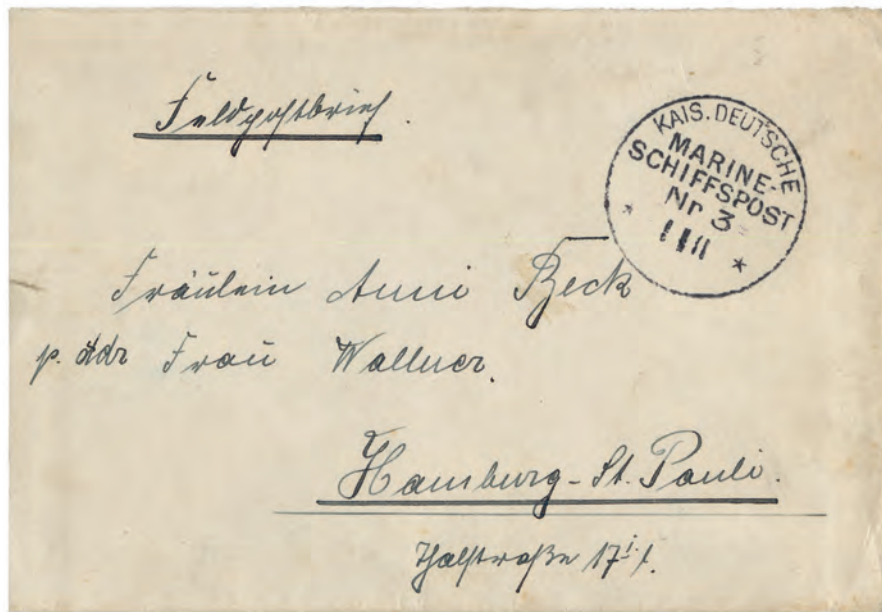 Feldpostbrief.
KAIS. DEUTSCHE
MARINE-
SCHIFFSPOST
Nr 3
* *
Fräulein Anni Beck
p. Adr Frau Wallner.
Hamburg-St. Pauli.
Thalstraße 17